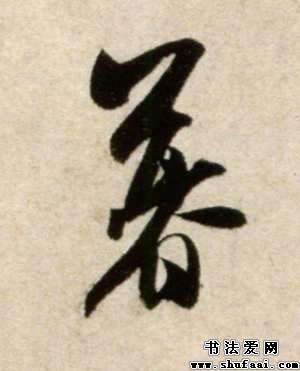 著
书法爱网
www.shufaai.com